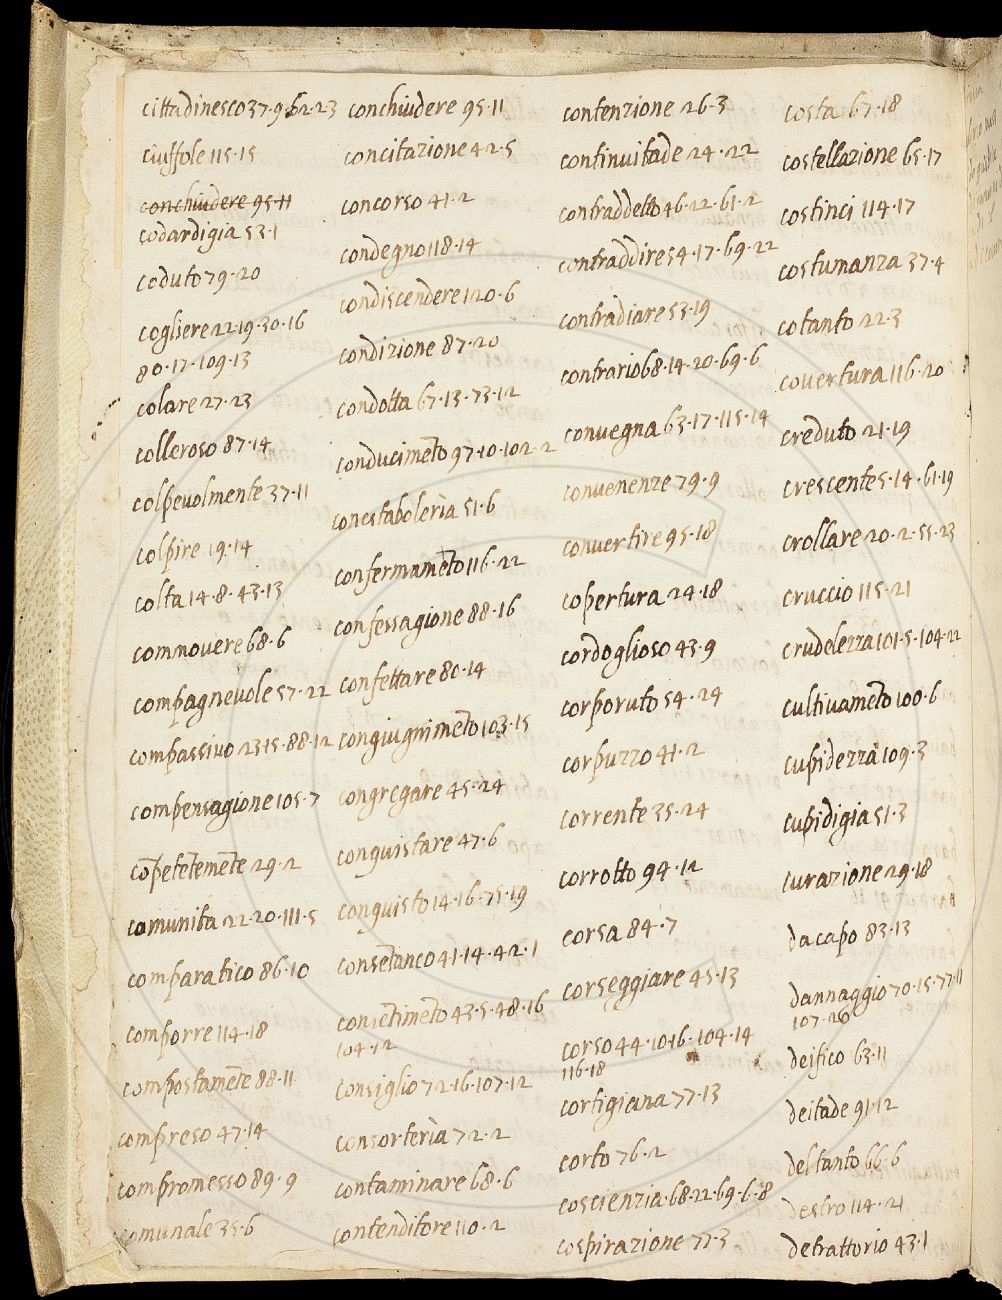 cittadinesco 37·9·62·23
ciuffole 115·15
conchiudere 95·11
codardigia 53·1
coduto 79·20
cogliere 22·19·30·16
80·17·109·13
colare 27·23
colleroso 87·14
colpevolmente 37·11
colpire 19·14
colta 14·8·43·13
commovere 68·6
compagnevole 57·22
compassivo 23·15·88·12
compensagione 105·7
cōpetētemēte 29·2
comunita 22·20·111·5
comparatico 86·10
comporre 114·18
compostamēte 88·11
compreso 47·14
compromesso 89·9
comunale 35·6
conchiudere 95·11
concitazione 42·5
concorso 41·2
condegno 118·14
condiscendere 120·6
condizione 87·20
condotta 67·13·73·12
conducimēto 97·10·102·2
conestaboleria 51·6
confermamēto 116·22
confessagione 88·16
confettare 80·14
congiugnimēto 103·15
congregare 45·24
conquistare 47·6
conquisto 14·16·75·19
consētaneo 41·14·42·1
consētimēto 43·5·48·16
104·12
consiglio 72·16·107·12
consorteria 72·2
contaminare 68·6
contenditore 110·2
contenzione 26·3
continuitade 24·22
contraddetto 46·22·61·2
contraddire 54·17·69·22
contradiare 53·19
contrario 68·14·20·69·6
convegna 63·17·115·14
convenenze 79·9
convertire 95·18
copertura 24·18
cordoglioso 43·9
corporuto 54·24
corpuzzo 41·2
corrente 35·24
corrotto 94·12
corsa 84·7
corseggiare 45·13
corso 44·10·16·104·14
116·18
cortigiana 77·13
corto 76·2
coscienzia·68·22·69·6·8
cospirazione 77·3
costa 67·18
costellazione 65·17
costinci 114·17
costumanza 37·4
cotanto 22·3
covertura 116·20
creduto 21·19
crescente 5·14·61·19
crollare 20·2·55·23
cruccio 115·21
crudelezza 101·5·104·22
cultivamēto 100·6
cupidezza 109·3
cupidigia 51·3
curazione 29·18
da capo 83·13
dannaggio 70·15·77·11
107·26
deifico 63·11
deitade 91·12
del tanto 66·6
destro 114·21
detrattorio 43·1